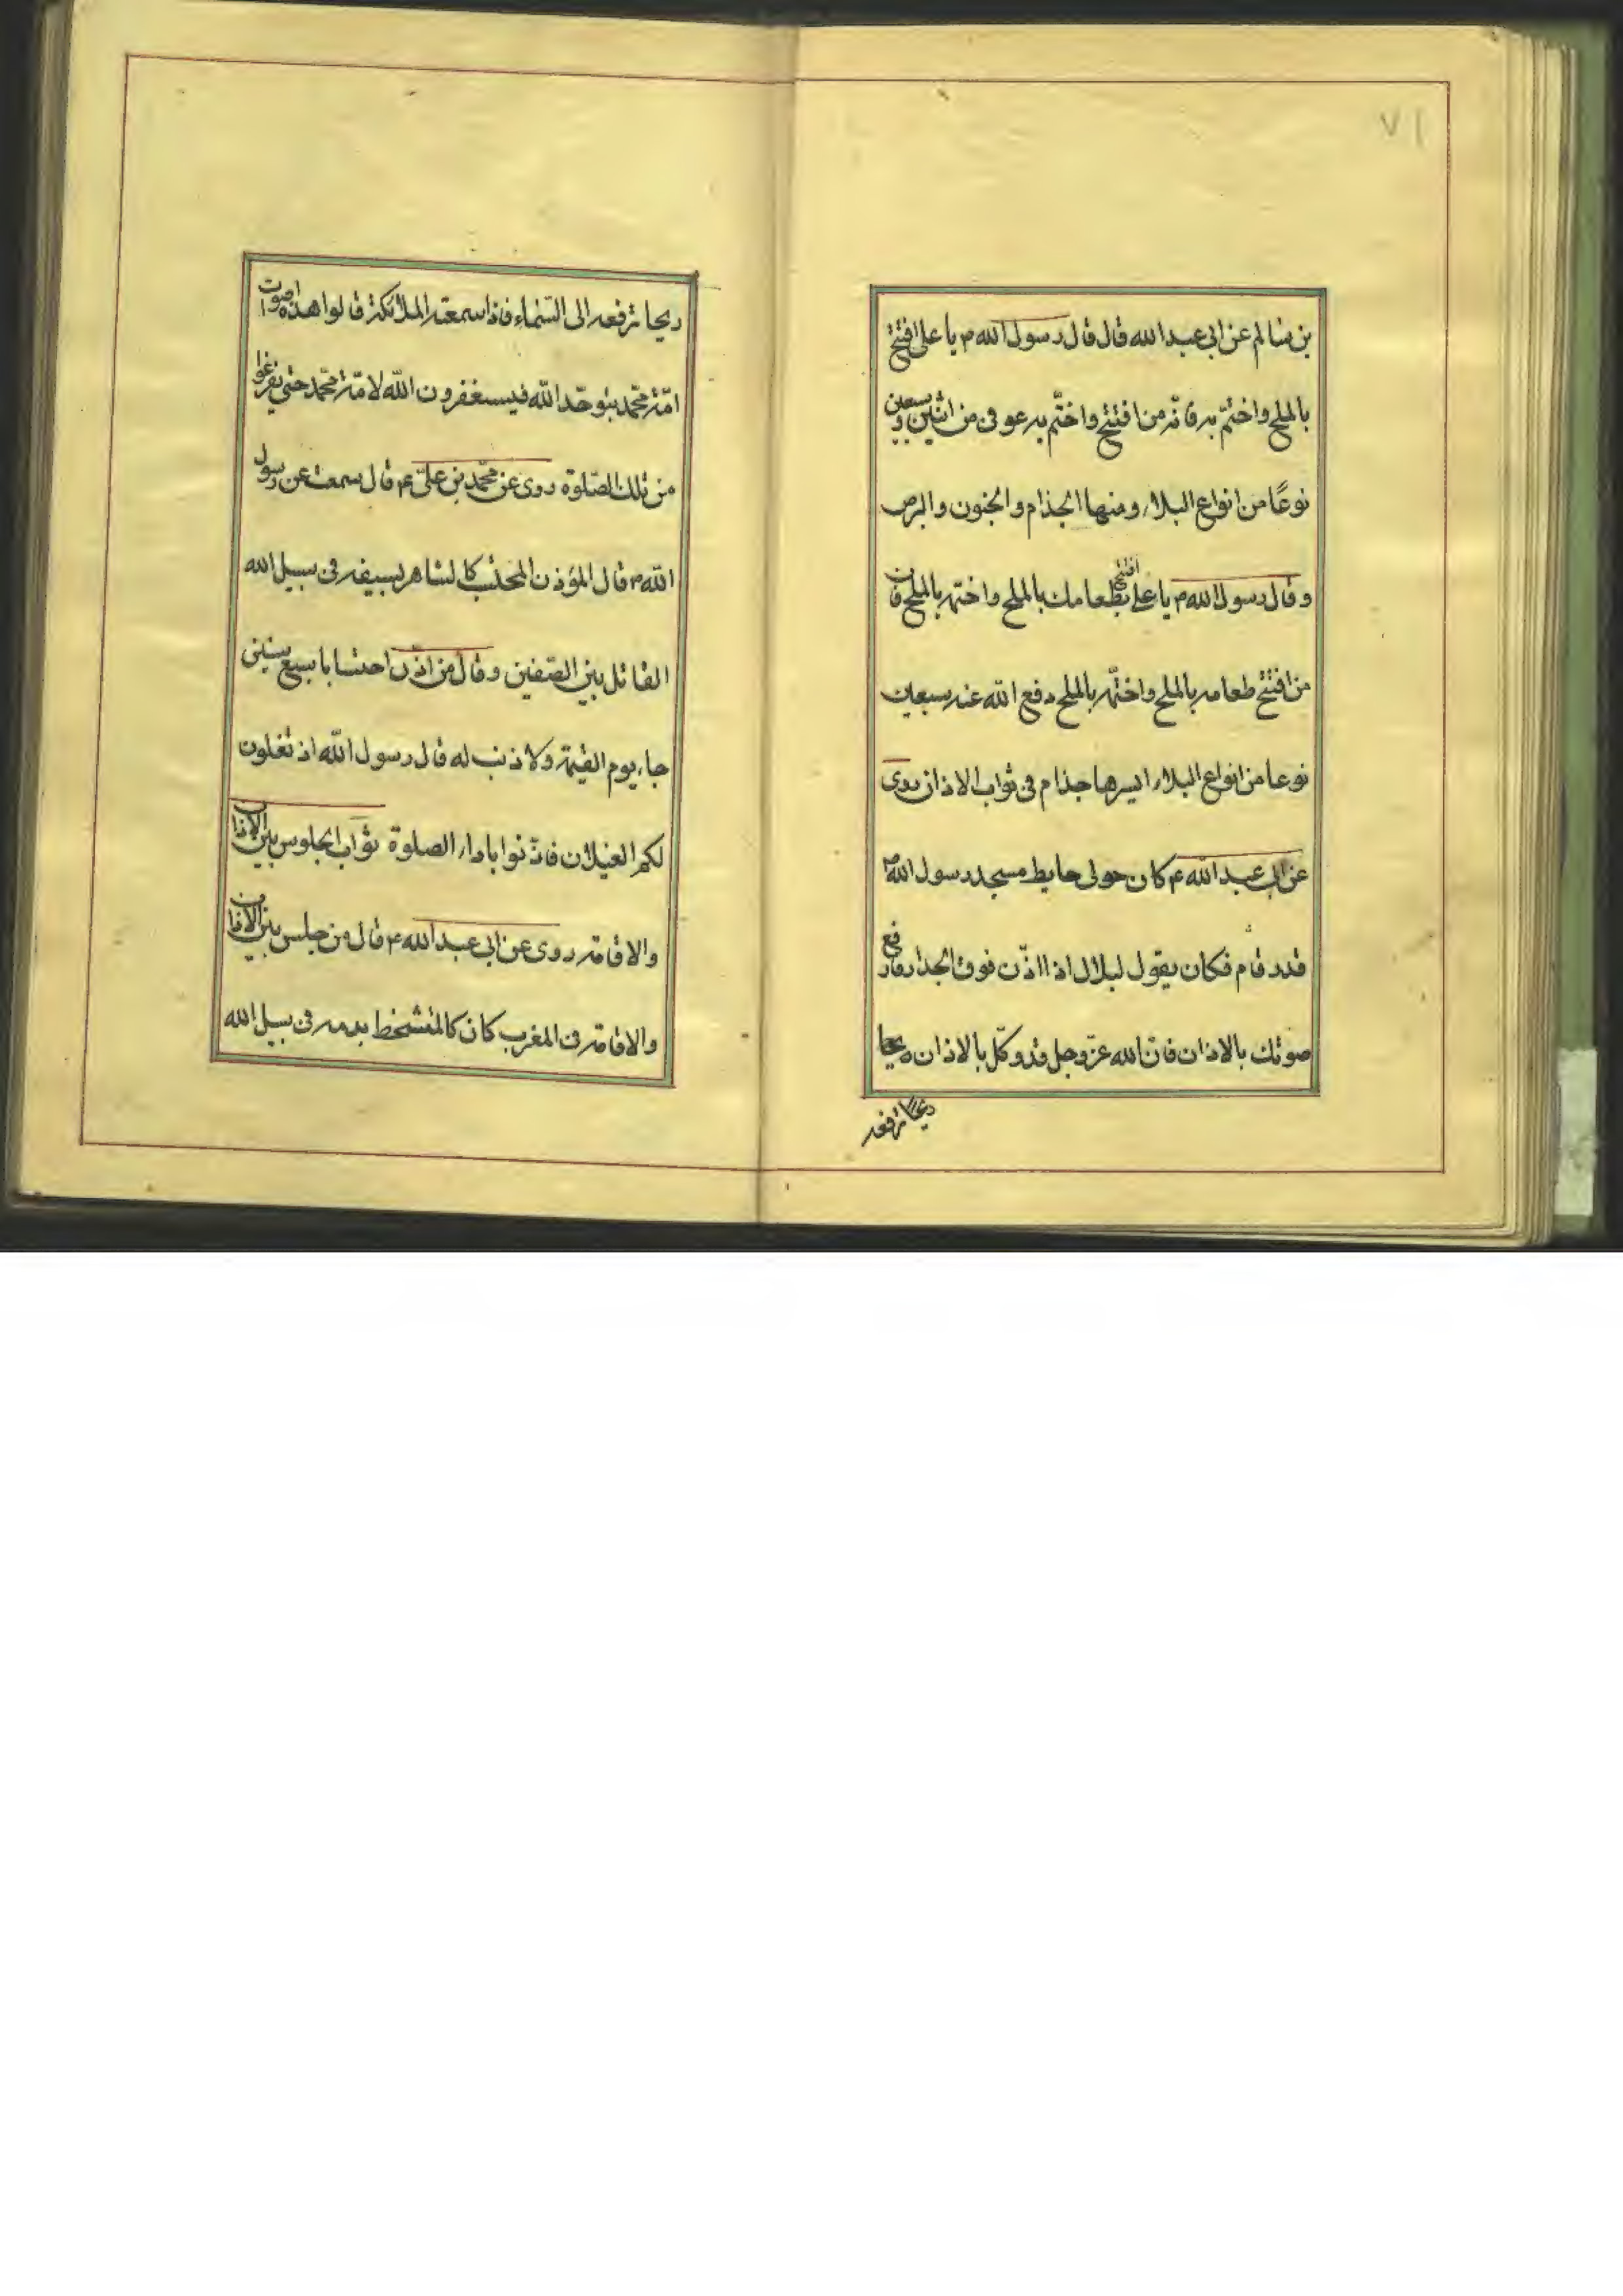 ٧١
بن سالم عن ابی عبدالله قال قال رسول الله ص یا علی افتتح
بالملح واختم به فانّه من افتتح واختم به عوفی من اثنین وسبعین
نوعًا من انواع البلاء ومنها الجذام والجنون والبرص
وقال رسول الله ص یا علی افتتح طعامك بالملح واختمه بالملح فان
من افتتح طعامه بالملح واختمه بالملح دفع الله عنه سبعین
نوعا من انواع البلاء ایسرها جذام فی ثواب الاذان روی
عن ابی عبد الله ع کان حولی حایط مسجد رسول الله ص
قدر قام فکان یقول لبلال اذا اذّن فوق الجدار وارفع
صوتك بالاذان فانّ الله عزّ وجل قد وکّل بالاذان ریحا
ریحا ترفعه
ریحا ترفعه الی السّماء فاذا سمعته الملائکة قالوا هذه اصوات
امّة محمّد بتوحّد الله فیستغفرون الله لامّة محمّد حتی یفرغوا
من تلك الصّلوة روی عن محمّد بن علیّ ع قال سمعت عن رسول
الله ص قال المؤذن المحتسب کالشاهر بسیفه فی سبیل الله
القاتل بین الصّفین وقال من اذّن احتسابا سبع سنین
جاء یوم القیمة ولا ذنب له قال رسول الله اذ تغلون
لکم الغیلان فاذّنوا باداء الصلوة ثواب الجلوس بین الاذان
والاقامة روی عن ابی عبد الله ع قال من جلس بین الاذان
والاقامة فی المغرب کان کالمتشحّط بدمه فی سبیل الله